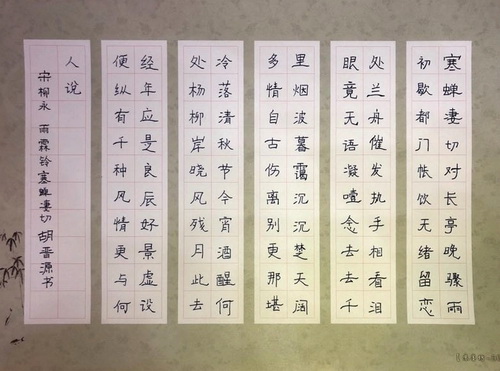 寒蝉凄切对长亭晚骤雨
初歇都门帐饮无绪留恋
处兰舟催发执手相看泪
眼竟无语凝噎念去去千
里烟波暮霭沉沉楚天阔
多情自古伤离别更那堪
冷落清秋节今宵酒醒何
处杨柳岸晓风残月此去
经年应是良辰好景虚设
便纵有千种风情更与何
人说
宋柳永 雨霖铃寒蝉凄切 胡晋源书